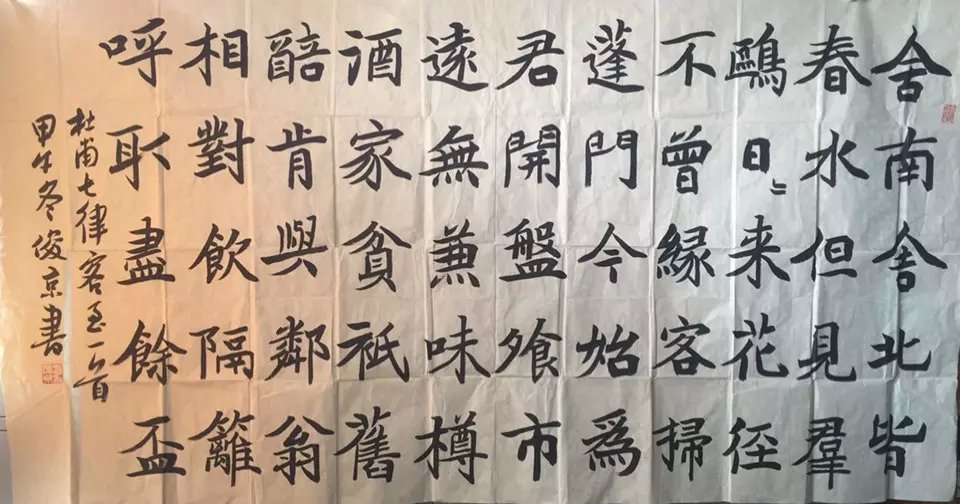 舍南舍北皆
春水但見羣
鷗日〻来花径
不曾緣客掃
蓬門今始爲
君開盤飧市
遠無兼味樽
酒家貧祇舊
醅肯與鄰翁
相對飲隔籬
呼取盡餘盃
杜甫七律客至一首
甲午冬俊京書